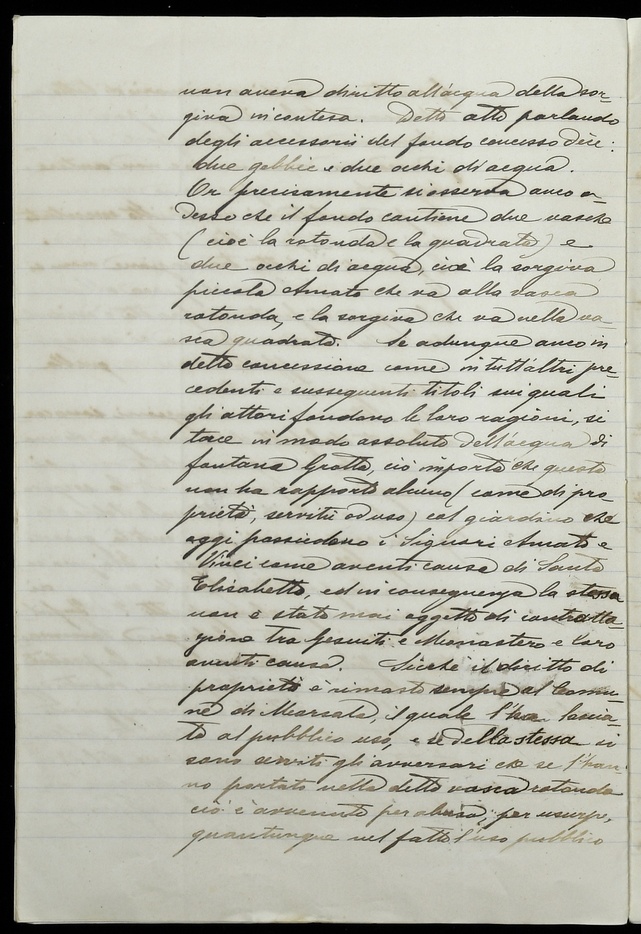 non aveva diritto all'acqua della sor-
giva in contesa. Detto atto parlando
degli accessorii del fondo concesso dice:
due gebbie e due occhi di acqua.
Or precisamente si osserva anco a-
desso che il fondo contiene due vasche
(cioè la rotonda e la quadrata) e
due occhi di acqua, cioè la sorgiva
piccola Amato che va alla vasca
rotonda, e la sorgiva che va nella va-
sca quadrata. Se adunque anco in
detta concessione come in tutt'altri pre-
cedenti e susseguenti titoli sui quali
gli attori fondano le loro ragioni, si
tace in modo assoluto dell'acqua di
fontana Grotta, ciò importa che questa
non ha rapporto alcuno (come di pro
prietà, servitù od uso) col giardino che
oggi possiedono i Signori Amato e
Vinci come aventi causa di Santa
Elisabetta, ed in conseguenza la stessa
non è stata mai oggetto di contratta-
zione tra Gesuiti e Monastero e loro
aventi causa. Sicché il diritto di
proprietà è rimasto sempre al Comu-
ne di Marsala, il quale l'ha lascia-
to al pubblico uso, e se della stessa si
sono serviti gli avversari che se l'han-
no portata nella detta vasca rotonda
ciò è avvenuto per abuso, per usurpo,
quantunque nel fatto l'uso pubblico